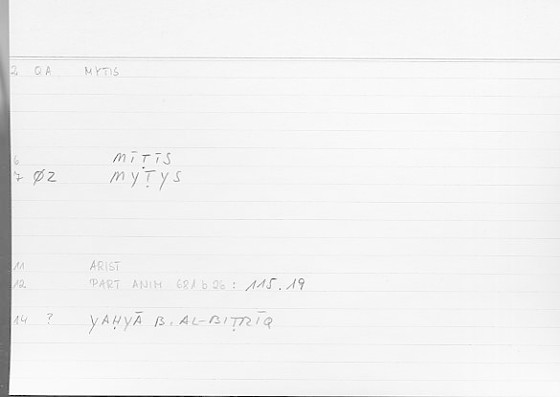 2 QA MYTIS
6 MĪṬĪS
7 ØZ MYṬYS
11 ARIST
12 PART ANIM 681 b 26: 115.19
14 ? YAḤYĀ B. AL-BIṬRĪQ